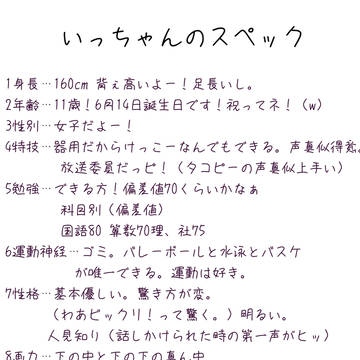 いっちゃんのスペック
1身長…160cm 背ぇ高いよー！足長いし。
2年齢…11歳！6月14日誕生日です！祝ってネ！（w）
3性別…女子だよー！
4特技…器用だからけっこーなんでもできる。声真似得意。
放送委員だっピ！（タコピーの声真似上手い）
5勉強…できる方！偏差値70くらいかなぁ
科目別（偏差値）
国語80 算数70理、社75
6運動神経…ゴミ。バレーボールと水泳とバスケ
が唯一できる。運動は好き。
7性格…基本優しい。驚き方が変。
（わあビックリ！って驚く。）明るい。
人見知り（話しかけられた時の第一声がヒッ）
8画力…下の中と下の下の真ん中